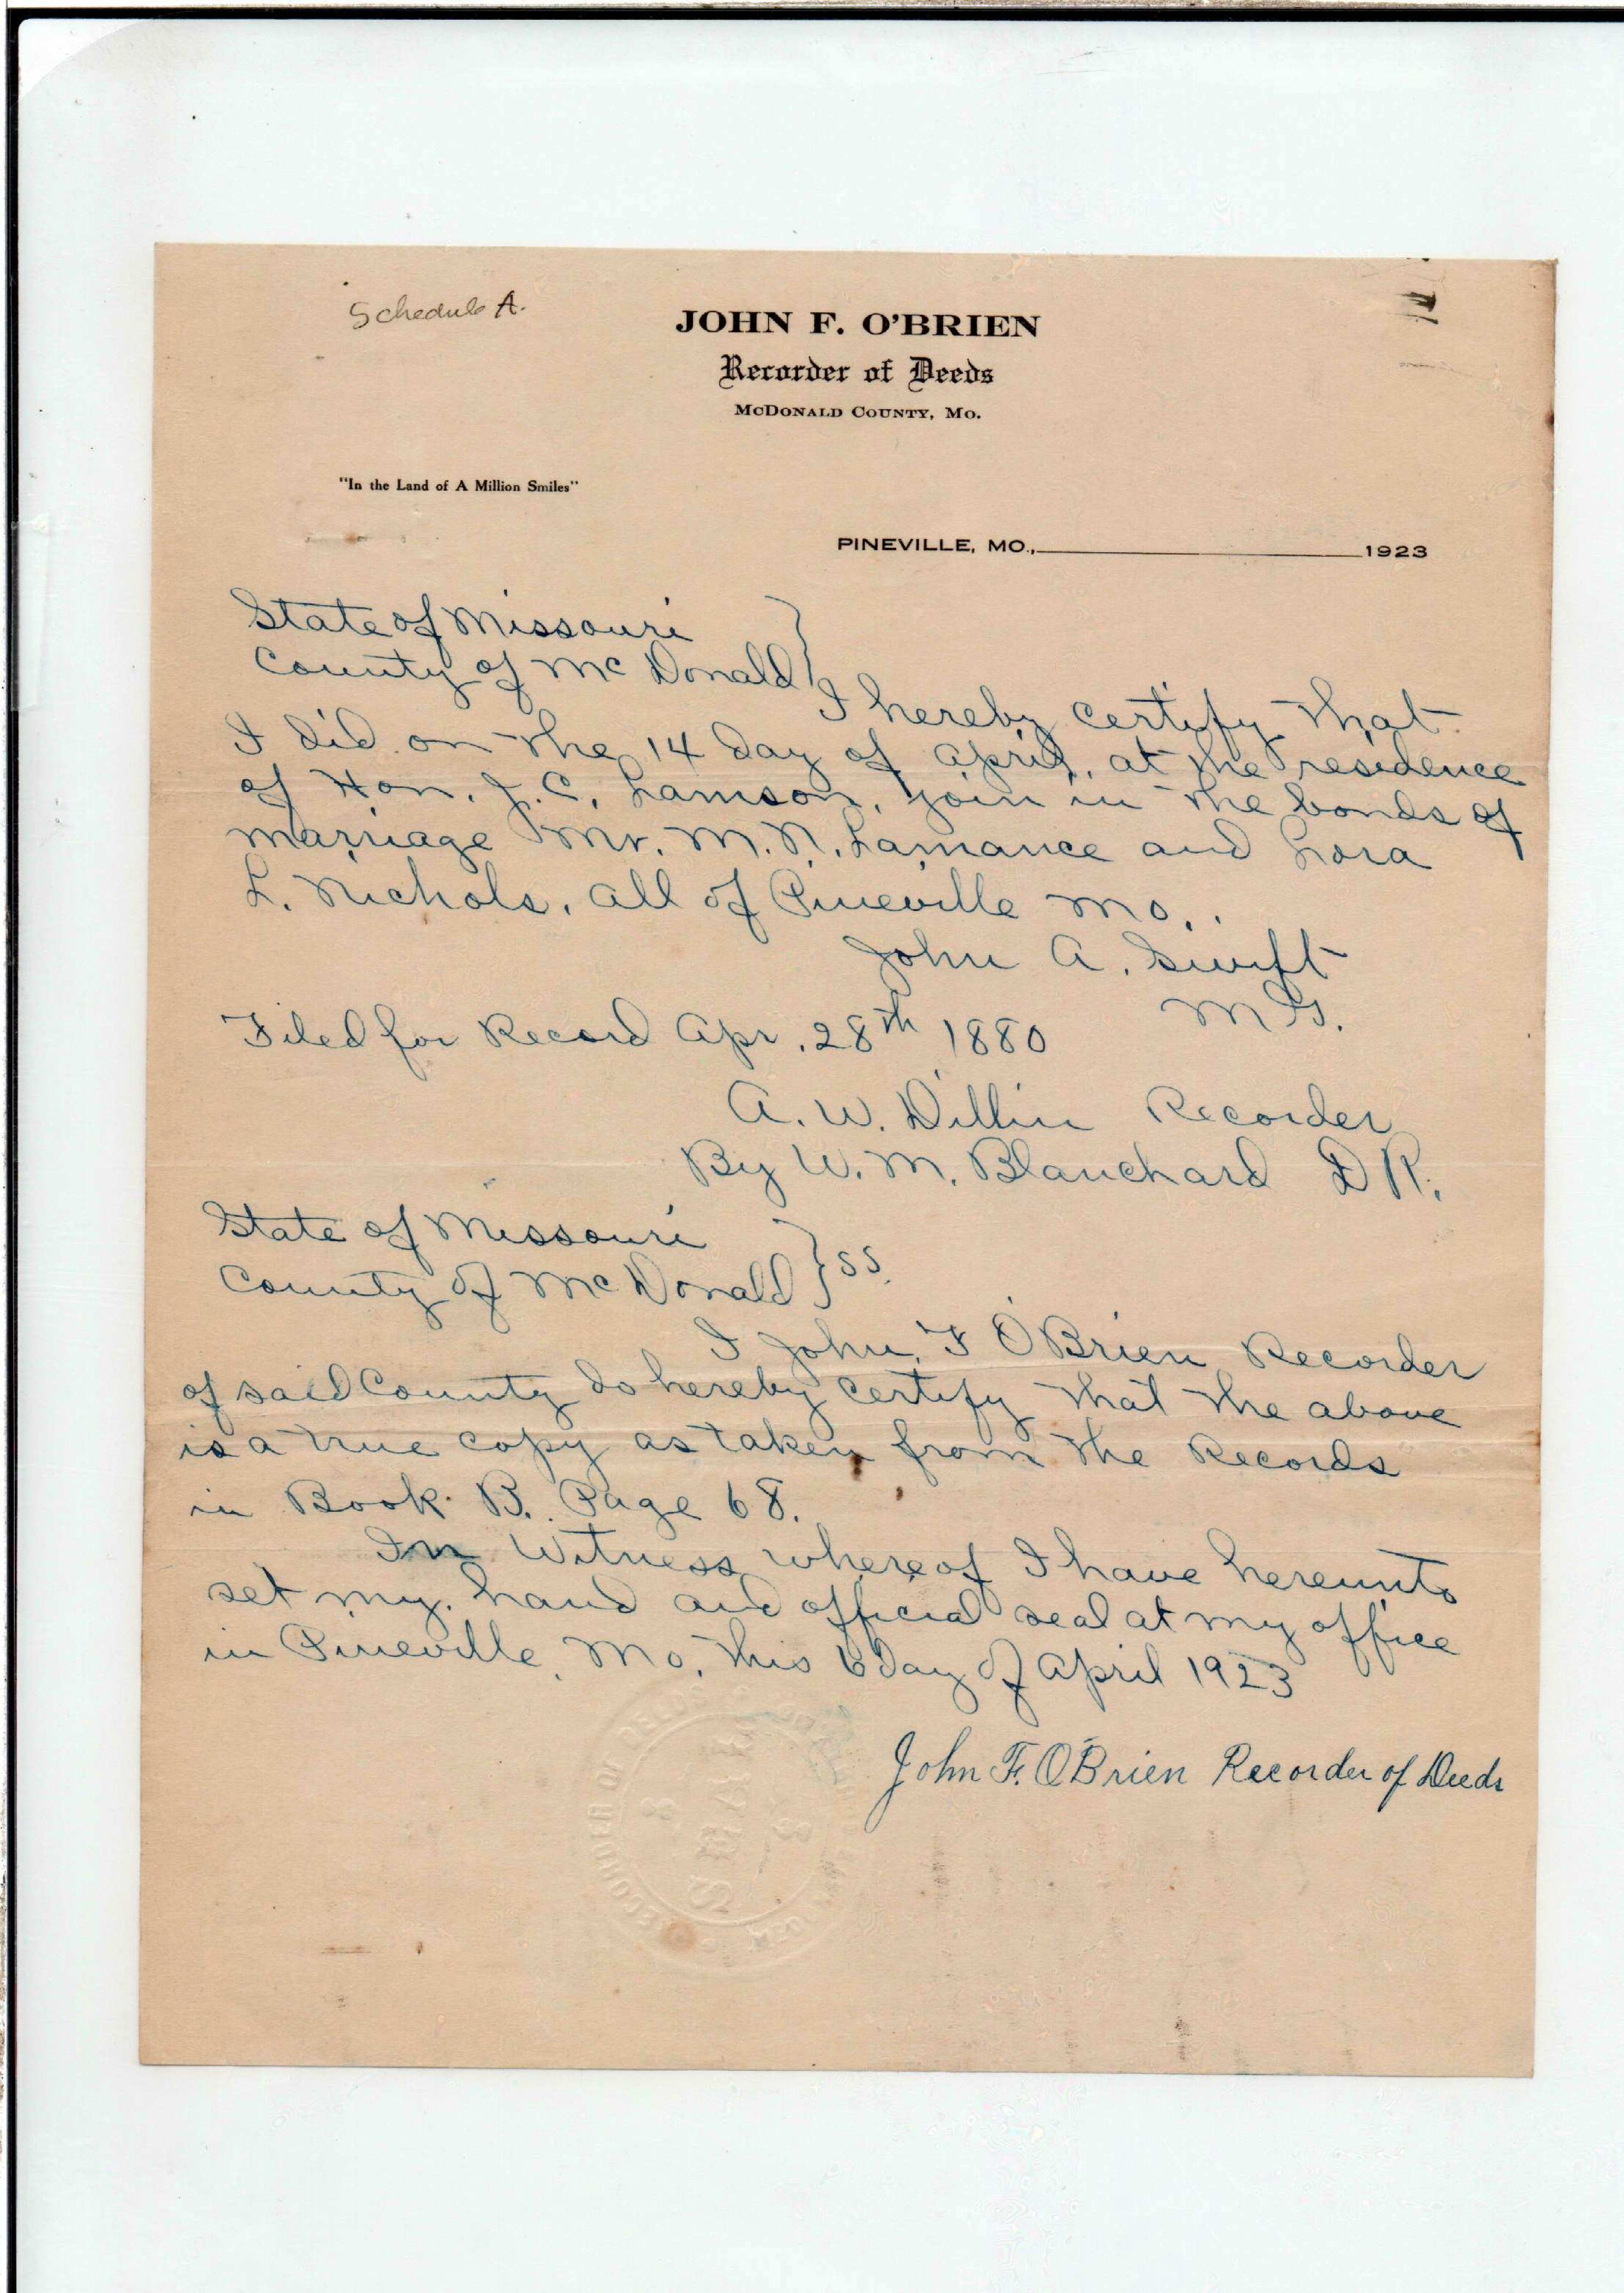 Schedule A.
JOHN F. O'BRIEN
Recorder of Deeds
McDONALD COUNTY, MO.
"In the Land of A Million Smiles"
PINEVILLE, MO., 1923
State of Missouri }
County of McDonald }
I hereby certify that
I did on the 14 day of April, at the residence
of Hon. J. C. Lamson, join in the bonds of
marriage Mr. M. N. Lamance and Lora
L. Nichols, all of Pineville Mo.
John A. Swift
M G.
Filed for Record Apr. 28th 1880
A. W. Dillin Recorder
By W. M. Blanchard D R.
State of Missouri }
County of McDonald } SS.
I John F O'Brien Recorder
of said County do hereby certify that the above
is a true copy as taken from the Records
in Book B. Page 68.
In Witness whereof I have hereunto
set my hand and official seal at my office
in Pineville, Mo, this 6 day of April 1923
John F. O'Brien Recorder of Deeds
RECORDER OF DEEDS
SEAL